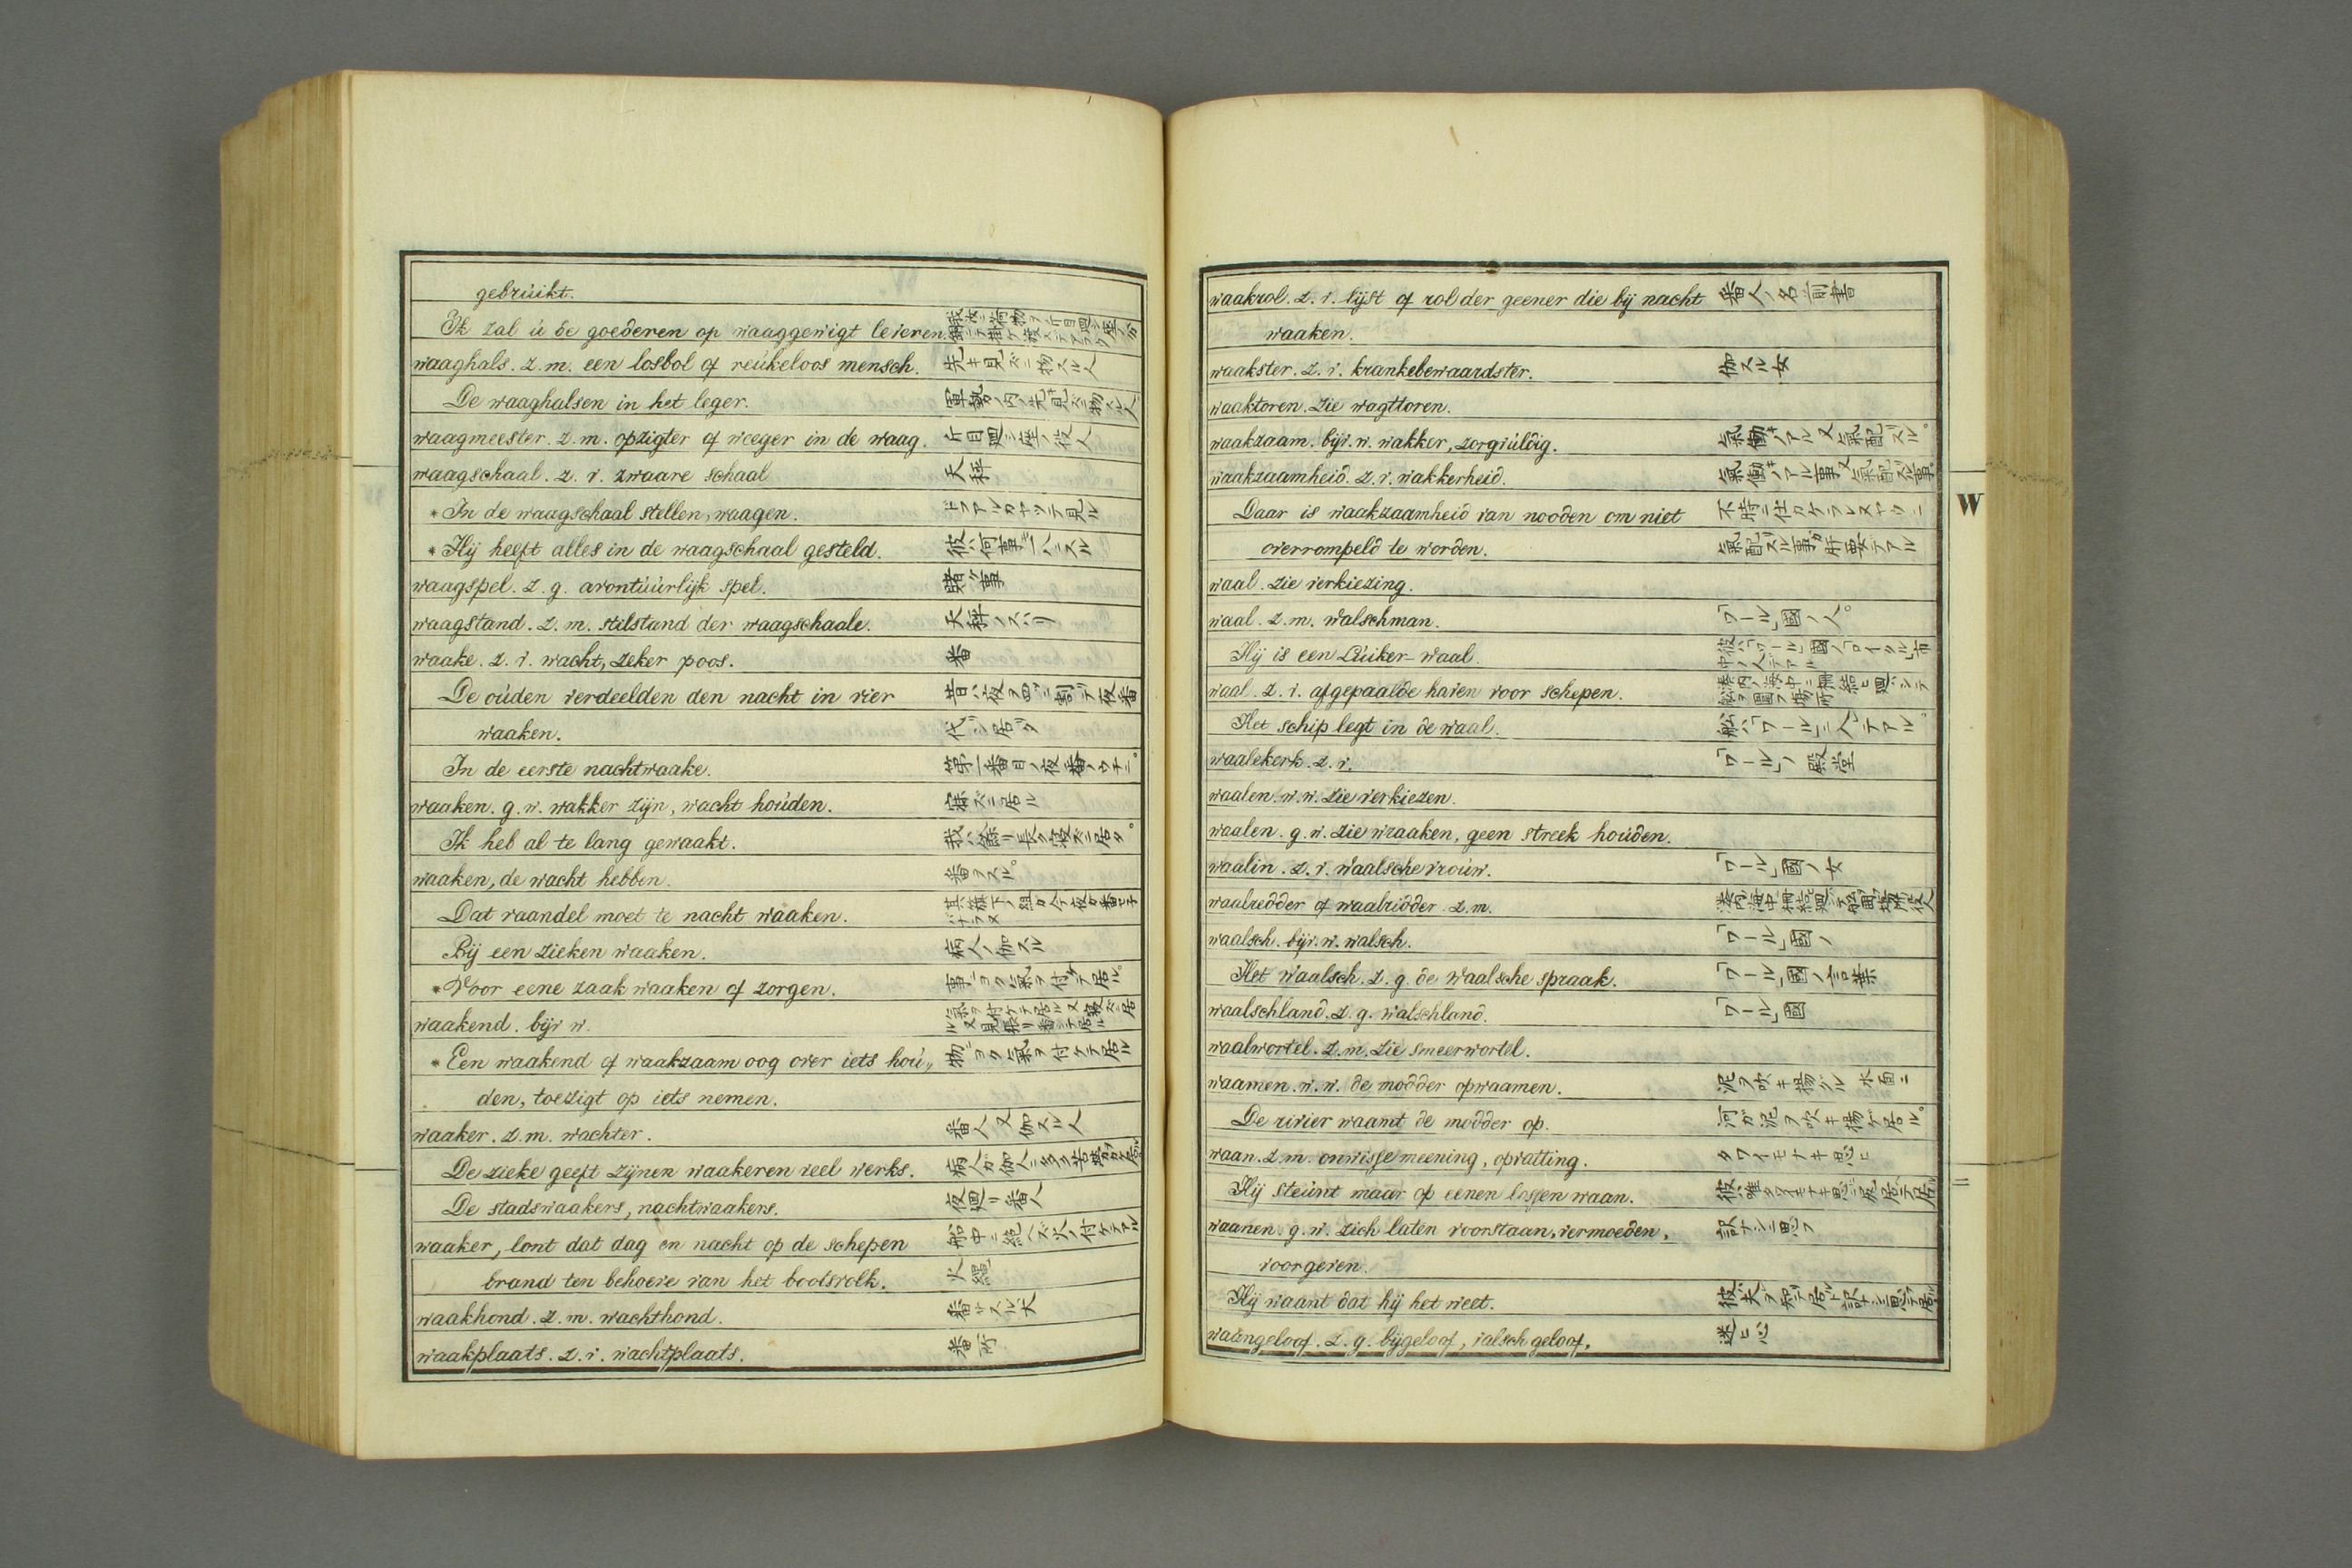 gebrúikt.
Ik zal ú de goederen op waaggewigt leveren.
waaghals. z. m. een losbol of reúkeloos mensch. 先キ見ズニ物スル人
De waaghalsen in het leger. 軍勢ノ内ノ先キ見ズニ物スル人
waagmeester. z. m. opzigter of weeger in de waag. 斤目廻シ座ノ役人
waagschaal. z. v. zwaare schaal 天秤
*In de waagschaal stellen, waagen. ドフアルカヤツテ見ル
*Hij heeft alles in de waagschaal gesteld.
waagspel. z. g. avontúúrlijk spel. 賭ケ事
waagstand. z. m. stilstand der waagschaale. 天秤ノスハリ
waake. z. v. wacht, zeker poos. 番
De oúden verdeelden den nacht in vier 昔ハ夜ヲ四ツニ割テ夜番
waaken. 代ツ居タ
In de eerste nachtwaake. 第一番目ノ夜番ノウチニ。
waaken. g. w. wakker zijn, wacht hoúden. 寐ズニ居ル
Ik heb al te lang gewaakt. 我ハ餘リ長ク寐ズニ居タ。
waaken, de wacht hebben. 番ヲスル。
Dat vaandel moet te nacht waaken.
Bij een zieken waaken. 病人ノ伽スル
*Voor eene zaak waaken of zorgen. 事ニヨク氣ヲ付ケテ居ル。
waakend. bijv w.
*Een waakend of waakzaam oog over iets hoú„ 物ニヨク氣ヲ付ケテ居ル
den, toezigt op iets nemen.
waaker. z. m. wachter. 番人 又 伽スル人
De zieke geeft zijnen waakeren veel werks.
De stadswaakers, nachtwaakers. 夜廻リ番人
waaker, lont dat dag en nacht op de schepen 船中ニ絶ヘズ火ノ付ケテアル
brand ten behoeve van het bootsvolk. 火縄
waakhond. z. m. wachthond. 番ヲスル犬
waakplaats. z. v. wachtplaats. 番所
waakrol. z. v. lijst of rol der geener die bij nacht 番人ノ名前書
waaken.
waakster. z. v. krankebewaardster. 伽スル女
waaktoren. Zie wagttoren.
waakzaam. bijv. w. wakker, zorgvúldig. 氣働キノアル 又 氣配ズル。
waakzaamheid. z. v. wakkerheid. 氣働キノアル事 又 氣配ズル事。
Daar is waakzaamheid van nooden om niet 不時ニ仕カケラレヌヤウニ
overrompeld te worden. 氣配ズル事ガ肝要デアル
W
waal. Zie verkiezing.
waal. z. m. Walschman. 「ワール」國ノ人。
Hij is een Lúiker-Waal.
waal. z. v. afgepaalde haven voor schepen.
Het schip legt in de waal. 舩ハ「ワール」ニ入テアル。
waalekerk. z. v. 「ワール」ノ殿堂
waalen. w. w. Zie verkiezen.
waalen. g. w. Zie wraaken, geen streek hoúden.
waalin. z. v. Waalsche vroúw. 「ワール」國ノ女
waalredder of waalridder. z. m.
waalsch. bijv. w. walsch. 「ワール」國ノ
Het Waalsch. z. g. de Waalsche spraak. 「ワール」國ノ言葉
waalschland. z. g. Walschland. 「ワール」國
waalwortel. z. m. Zie smeerwortel.
waamen. w. w. de modder opwaamen. 泥ヲ吹キ揚グル 水面ニ
De rivier waamt de modder op. 河ガ泥ヲ吹キ揚ゲ居ル。
waan. z. m. onwisse meening, opvatting. タワイモナキ思ヒ
Hij steúnt maar op eenen lossen waan.
waanen. g. w. zich laten voorstaan, vermoeden, 訳ナシニ思フ
voorgeven.
Hij waant dat hij het weet.
waangeloof. z. g. bijgeloof, valsch geloof. 迷ヒ心